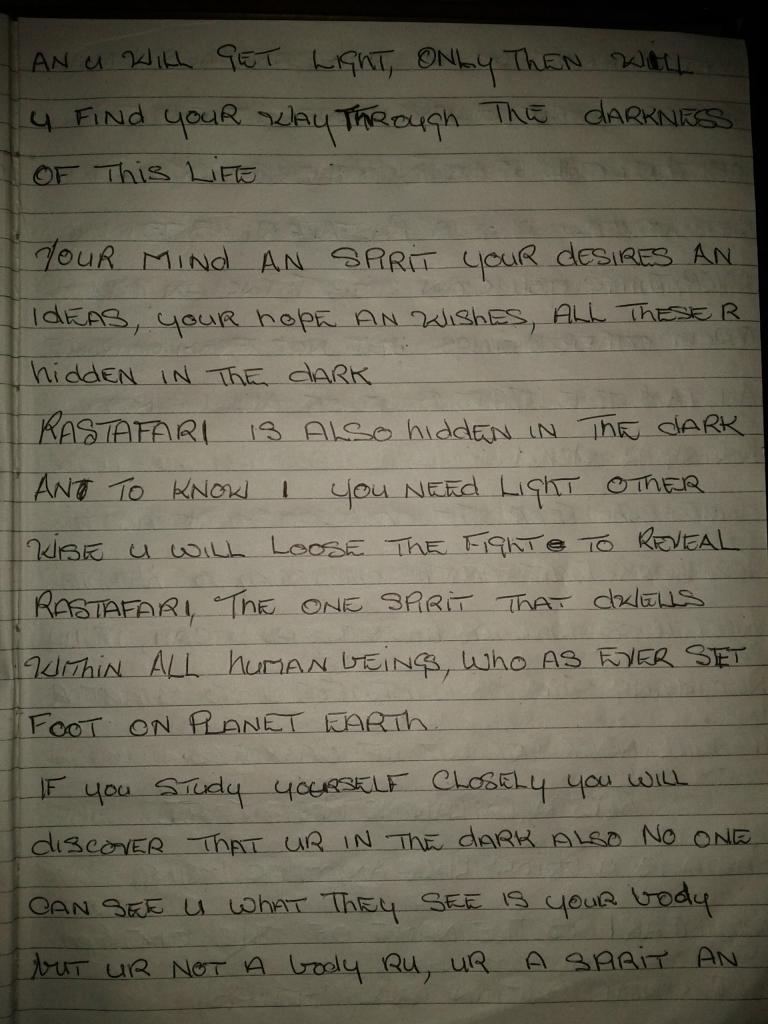 AN U WILL GET LIGHT, ONLY THEN WILL
U FIND YOUR WAY THROUGH THE DARKNESS
OF THIS LIFE
YOUR MIND AN SPIRIT YOUR DESIRES AN
IDEAS, YOUR HOPE AN WISHES, ALL THESE R
HIDDEN IN THE DARK
RASTAFARI IS ALSO HIDDEN IN THE DARK
AN TO KNOW I YOU NEED LIGHT OTHER
WISE U WILL LOOSE THE FIGHT TO REVEAL
RASTAFARI, THE ONE SPIRIT THAT DWELLS
WITHIN ALL HUMAN BEINGS, WHO AS EVER SET
FOOT ON PLANET EARTH.
IF YOU STUDY YOURSELF CLOSELY YOU WILL
DISCOVER THAT UR IN THE DARK ALSO NO ONE
CAN SEE U WHAT THEY SEE IS YOUR BODY
BUT UR NOT A BODY RU, UR A SPIRIT AN